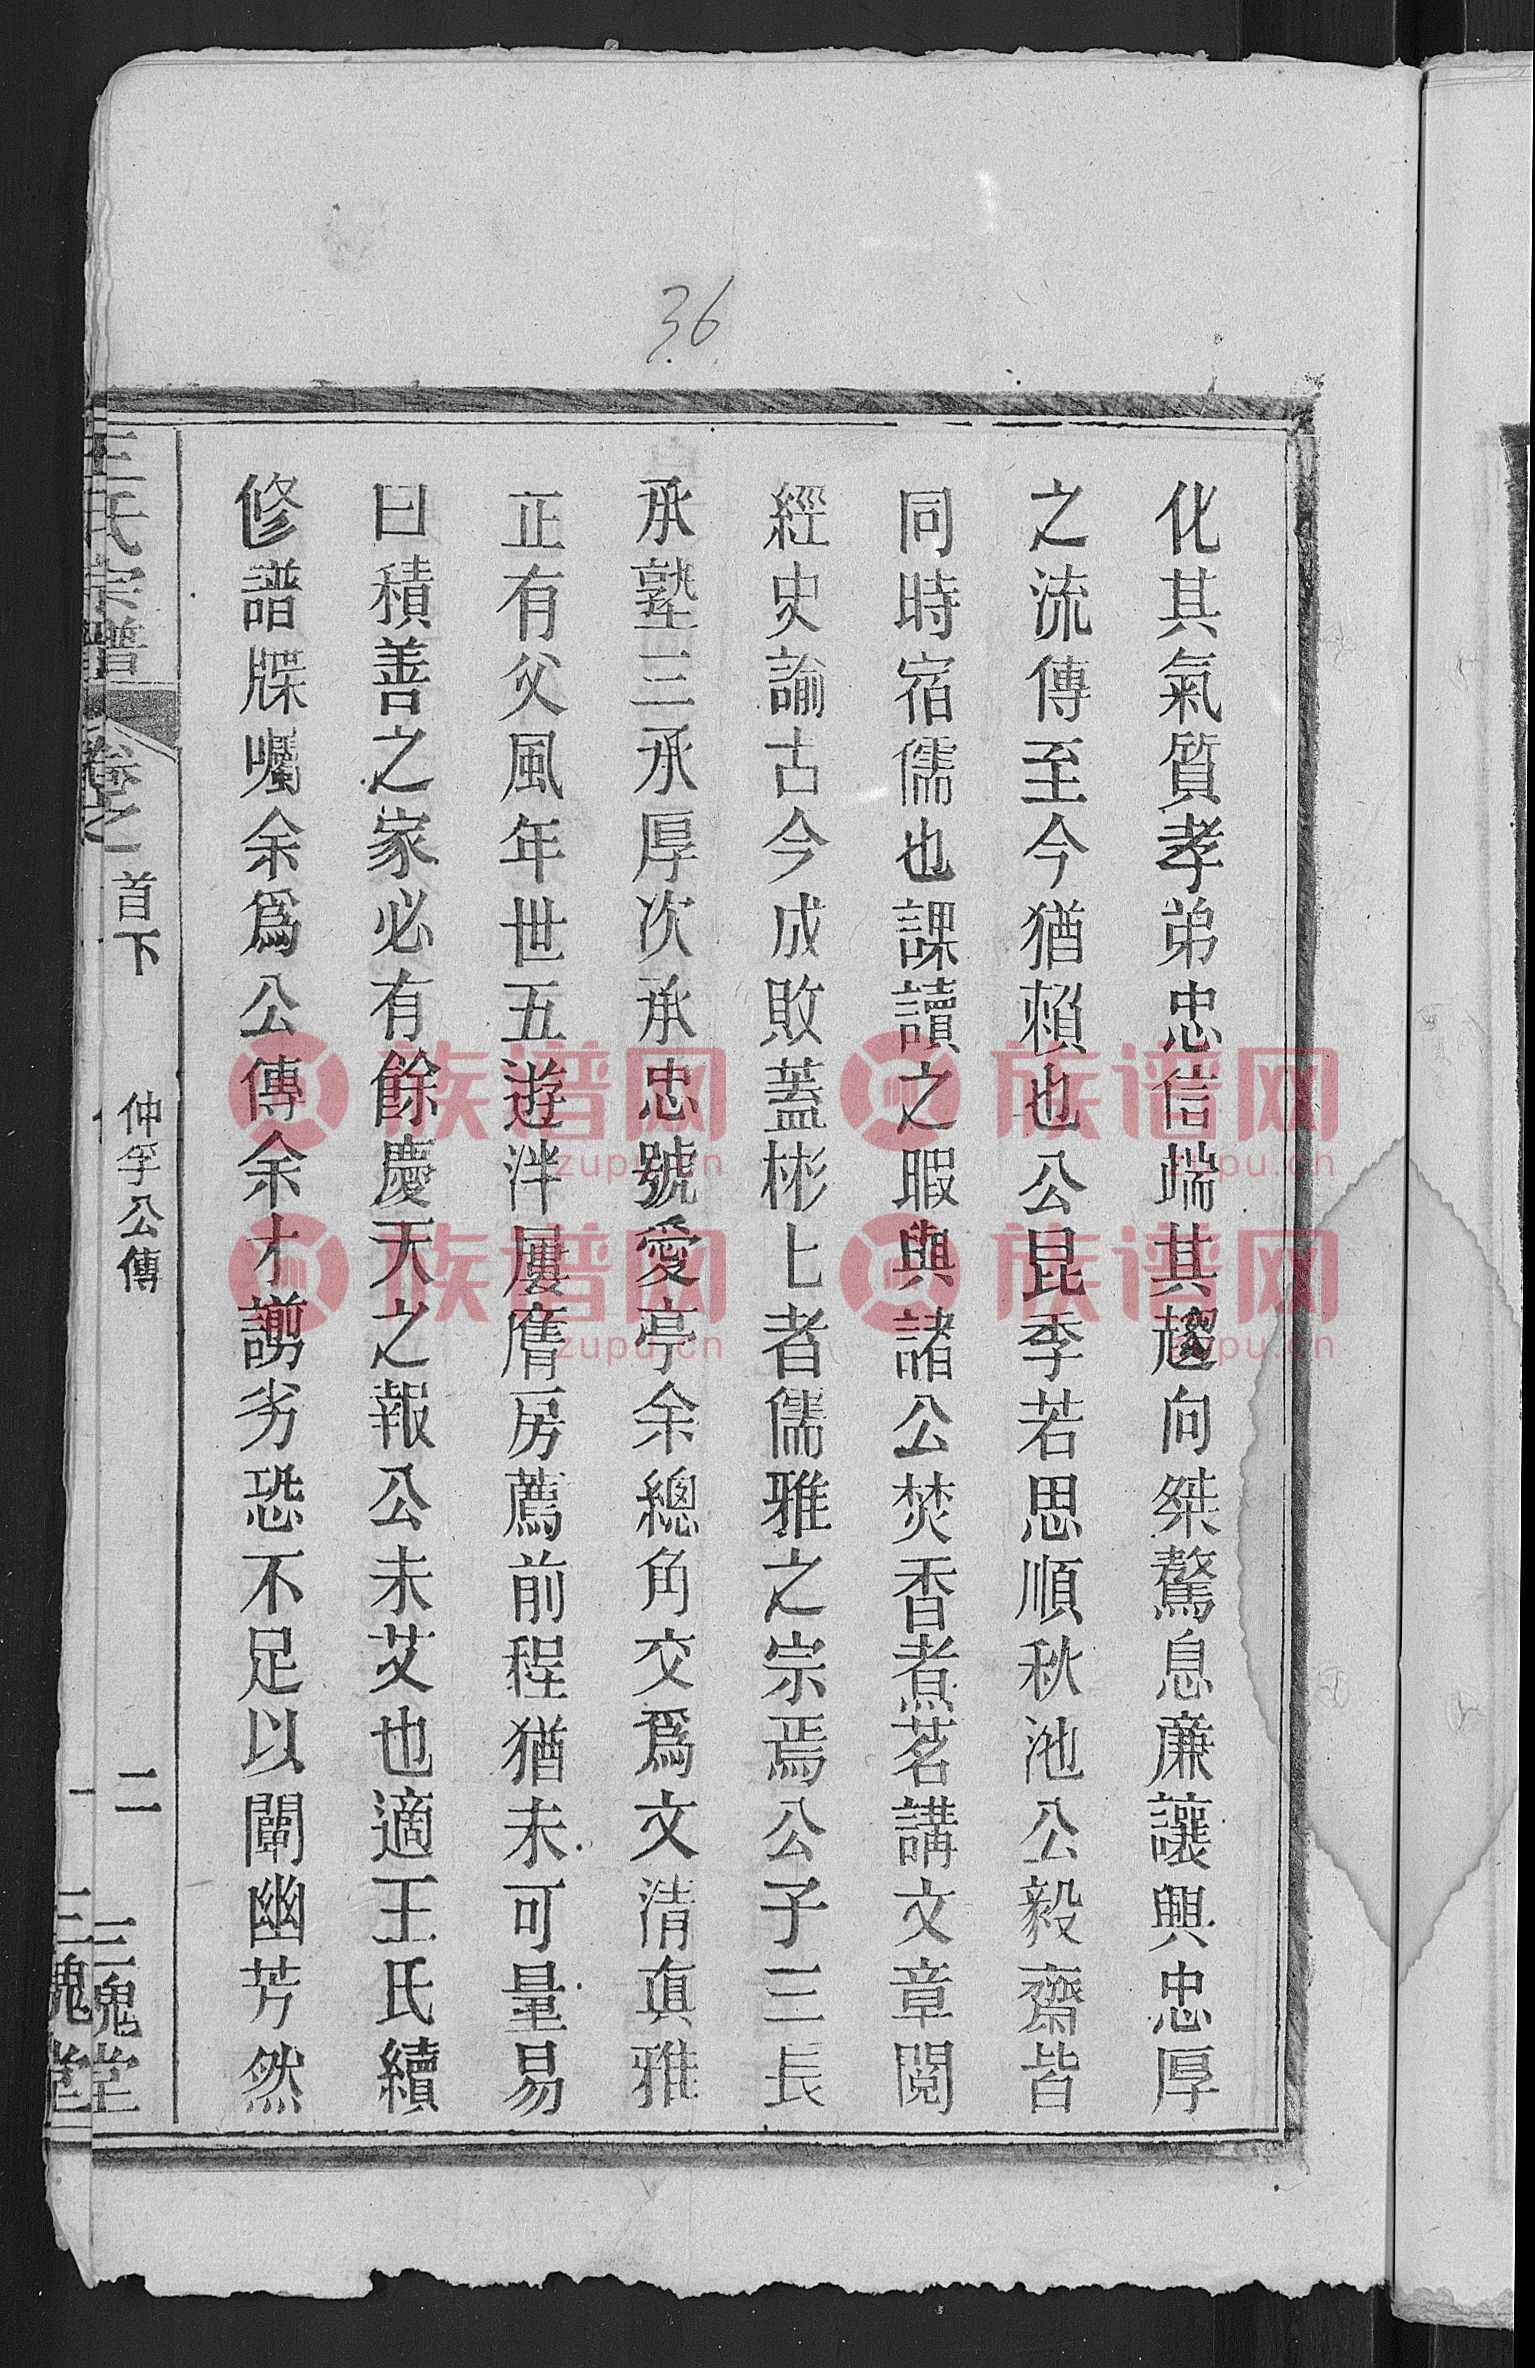 36
化其氣質孝弟忠信端其趨向桀驁息廉讓興忠厚
之流傳至今猶賴也公昆季若思順秋池公毅齋皆
同時宿儒也課讀之暇與諸公焚香煮茗講文章閱
經史論古今成敗蓋彬彬者儒雅之宗焉公子三長
承塾三承厚次承忠號愛亭余總角交爲文清真雅
正有父風年世五遊泮屢膺房薦前程猶未可量易
曰積善之家必有餘慶天之報公未艾也適王氏續
修譜牒囑余爲公傳余才謭劣恐不足以闡幽芳然
王氏宗譜
卷之
首下
仲孚公傳
二
三槐堂
一
三槐堂
族谱网
zupu.cn
族谱网
zupu.cn
族谱网
zupu.cn
族谱网
zupu.cn